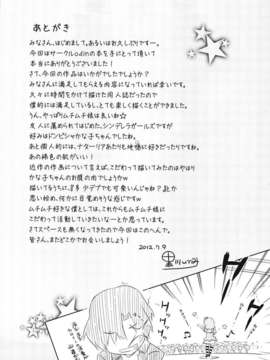 あとがき
みなさん、はじめまして。あるいはお久しぶりですー。
今回はサークルodinの本を手にとって頂いて
本当にありがとうございます！
さて、今回の作品はいかがでしたでしょうか？
みなさんに満足してもらえる内容になっていれば幸いです。
久々に時間をかけて描けた同人誌だったので
僕的には満足しているし、とても楽しく描くことができました。
うん、やっぱりムチムチ娘は良いねゅ
友人に薦められてはじめた、シンデレラガールズですが
好みはドンピシャかな子ちゃんでしたね。
あと個人的には、ナターリアあたりも地味に好きだったりですね
あの褐色の肌がいい！
近作の作画について言えば、こだわって描いてみたのはやはり
かな子ちゃんのお腹の肉でしょうかw
描いてるうちに、
思い始め、何かに目覚めそうな感じですw
ムチムチ好きな僕としては、これからもムチムチ娘に
こだわって活動していきたいなーとか思っています。
さてスペースも無くなってきたので今回はこのへんで。
皆さん、またどこかでお会いしましょう！
2012.7.9